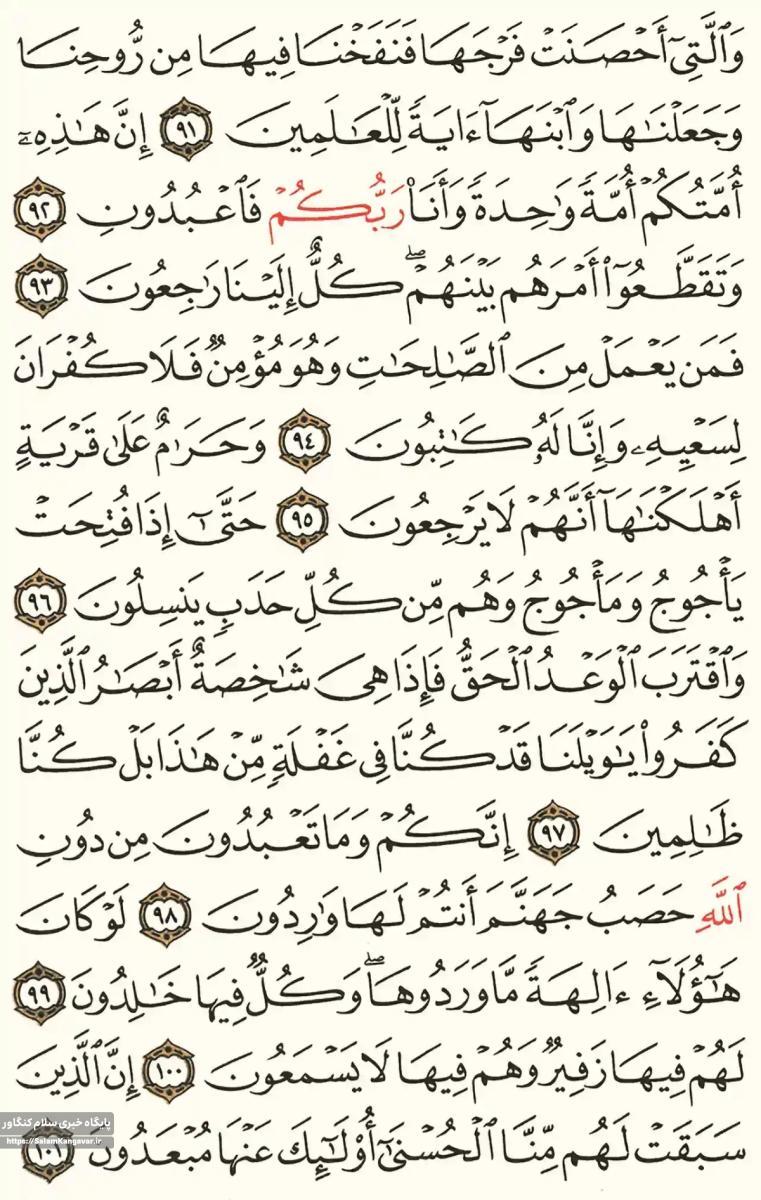 وَٱلَّتِىٓ أَحْصَنَتْ فَرْجَهَا فَنَفَخْنَا فِيهَا مِن رُّوحِنَا
وَجَعَلْنَٰهَا وَٱبْنَهَآ ءَايَةً لِّلْعَٰلَمِينَ ٩١ إِنَّ هَٰذِهِۦٓ
أُمَّتُكُمْ أُمَّةً وَٰحِدَةً وَأَنَا۠ رَبُّكُمْ فَٱعْبُدُونِ ٩٢
وَتَقَطَّعُوٓا۟ أَمْرَهُم بَيْنَهُمْ ۖ كُلٌّ إِلَيْنَا رَٰجِعُونَ ٩٣
فَمَن يَعْمَلْ مِنَ ٱلصَّٰلِحَٰتِ وَهُوَ مُؤْمِنٌ فَلَا كُفْرَانَ
لِسَعْيِهِۦ وَإِنَّا لَهُۥ كَٰتِبُونَ ٩٤ وَحَرَٰمٌ عَلَىٰ قَرْيَةٍ
أَهْلَكْنَٰهَآ أَنَّهُمْ لَا يَرْجِعُونَ ٩٥ حَتَّىٰٓ إِذَا فُتِحَتْ
يَأْجُوجُ وَمَأْجُوجُ وَهُم مِّن كُلِّ حَدَبٍ يَنسِلُونَ ٩٦
وَٱقْتَرَبَ ٱلْوَعْدُ ٱلْحَقُّ فَإِذَا هِىَ شَٰخِصَةٌ أَبْصَٰرُ ٱلَّذِينَ
كَفَرُوا۟ يَٰوَيْلَنَا قَدْ كُنَّا فِى غَفْلَةٍ مِّنْ هَٰذَا بَلْ كُنَّا
ظَٰلِمِينَ ٩٧ إِنَّكُمْ وَمَا تَعْبُدُونَ مِن دُونِ
ٱللَّهِ حَصَبُ جَهَنَّمَ أَنتُمْ لَهَا وَٰرِدُونَ ٩٨ لَوْ كَانَ
هَٰٓؤُلَآءِ ءَالِهَةً مَّا وَرَدُوهَا ۖ وَكُلٌّ فِيهَا خَٰلِدُونَ ٩٩
لَهُمْ فِيهَا زَفِيرٌ وَهُمْ فِيهَا لَا يَسْمَعُونَ ١٠٠ إِنَّ ٱلَّذِينَ
سَبَقَتْ لَهُم مِّنَّا ٱلْحُسْنَىٰٓ أُو۟لَٰٓئِكَ عَنْهَا مُبْعَدُونَ ١٠١
پایگاه خبری سلام کنگاور
https://SalamKangavar.ir